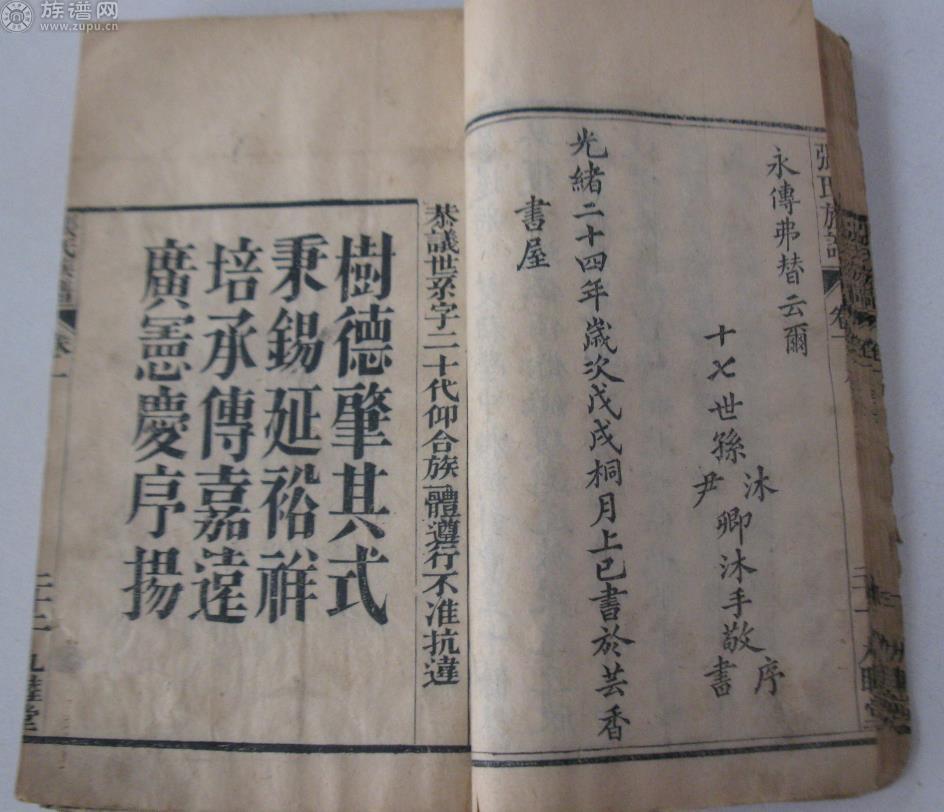 族谱网
www.zupu.cn
張氏族譜
卷一
永傳弗替云爾
十七世孫沐尹卿沐手敬序書
光緒二十四年歲次戊戌桐月上巳書於芸香
書屋
恭議世系字二十代仰合族一體遵行不准抗違
樹德肇其式
秉錫延裕祥
培承傳嘉遠
廣憲慶序揚
卷一
二十二